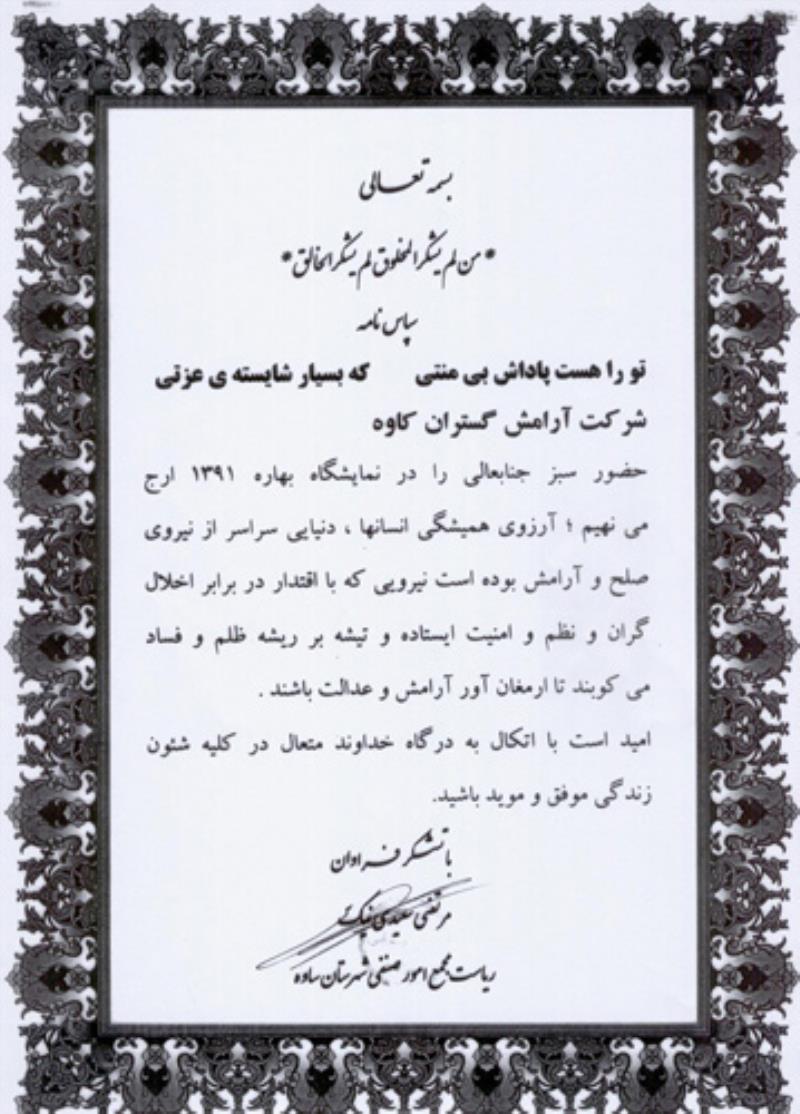 بسمه تعالی
* من لم یشکر المخلوق لم یشکر الخالق *
سپاس نامه
تو را هست پاداش بی منتی که بسیار شایسته ی عزتی
شرکت آرامش گستران کاوه
حضور سبز جنابعالی را در نمایشگاه بهاره ۱۳۹۱ ارج
می نهیم ؛ آرزوی همیشگی انسانها ، دنیایی سراسر از نیروی
صلح و آرامش بوده است نیرویی که با اقتدار در برابر اخلال
گران و نظم و امنیت ایستاده و تیشه بر ریشه ظلم و فساد
می کوبند تا ارمغان آور آرامش و عدالت باشند .
امید است با اتکال به درگاه خداوند متعال در کلیه شئون
زندگی موفق و موید باشید.
با تشکر فراوان
مرتضی سعیدی
ریاست مجمع امور صنفی شهرستان ساوه